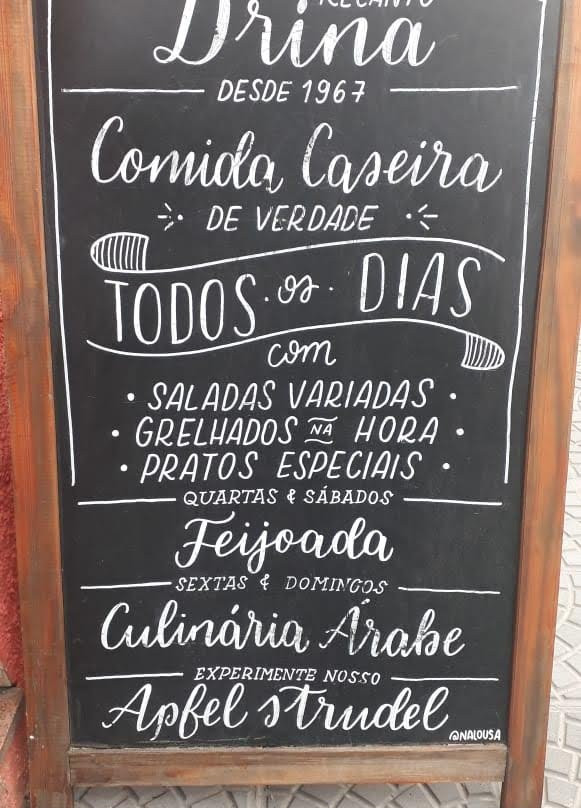 RECANTO
Drina
DESDE 1967
Comida Caseira
DE VERDADE
TODOS · os · DIAS
com
· SALADAS VARIADAS ·
· GRELHADOS NA HORA ·
· PRATOS ESPECIAIS ·
QUARTAS & SÁBADOS
Feijoada
SEXTAS & DOMINGOS
Culinária Árabe
EXPERIMENTE NOSSO
Apfel strudel
@NALOUSA